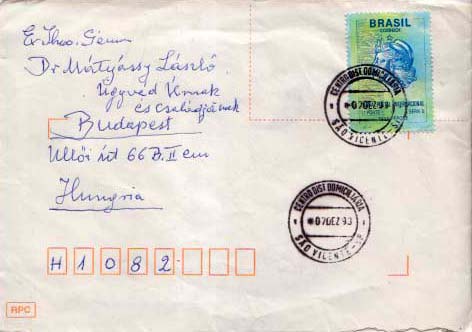 BRASIL
Dr Mátyássy László
Ügyvéd Úrnak
és családjának
Budapest
Üllői út 66 B. II em
Hungria
CENTRO DIST DOMICILIARIA
07 DEZ 93
SÃO VICENTE - SP
CENTRO DIST DOMICILIARIA
07 DEZ 93
SÃO VICENTE - SP
H 1 0 8 2 -
RPC